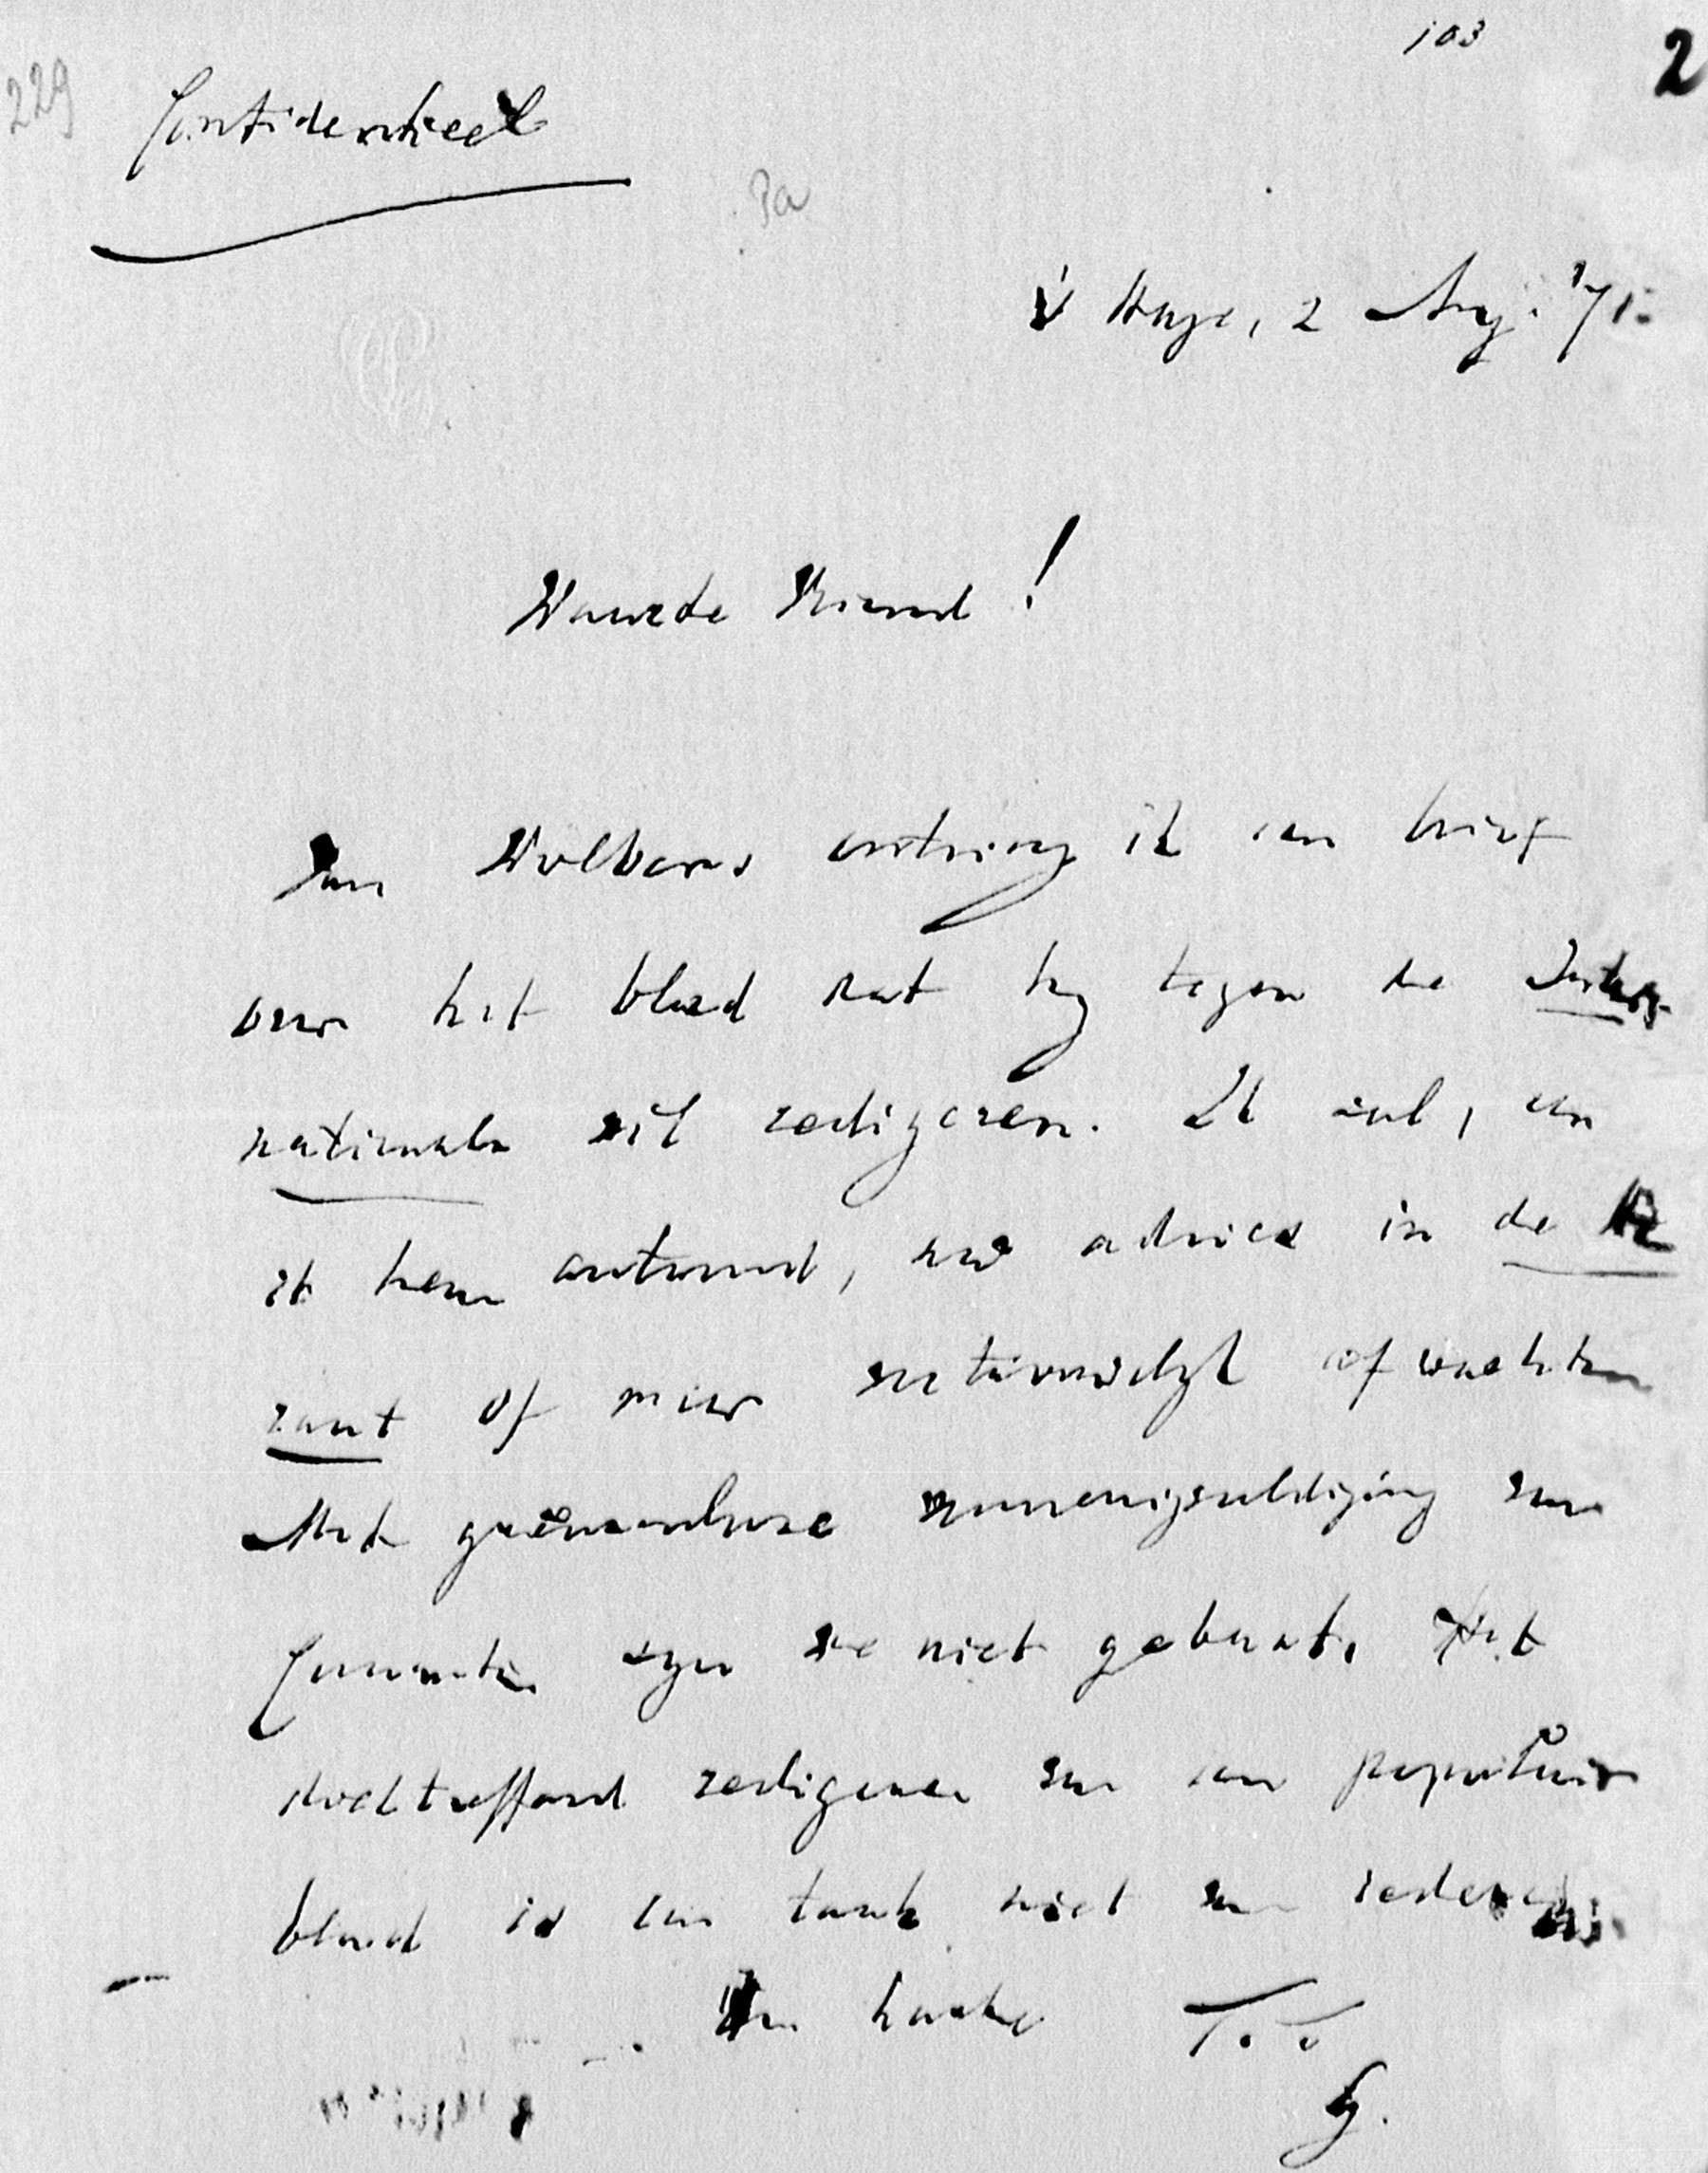 103
2
229
Confidentieel
3a
's Hage, 2 Aug. '71.
Waarde Vriend!
Van Wolbers ontving ik een brief
over het blad dat hij tegen de Inter-
nationale wil redigeren. Ik zal, en
ik hem antwoord, uw advies in de He
raut of meer rectstreeks afwachten
Met grenzenlooze vermenigvuldiging van
Couranten zijn we niet gebaat. Het
doeltreffend redigeren van een populair
blad is een taak niet van iedereen
Van harte T. T.
G.